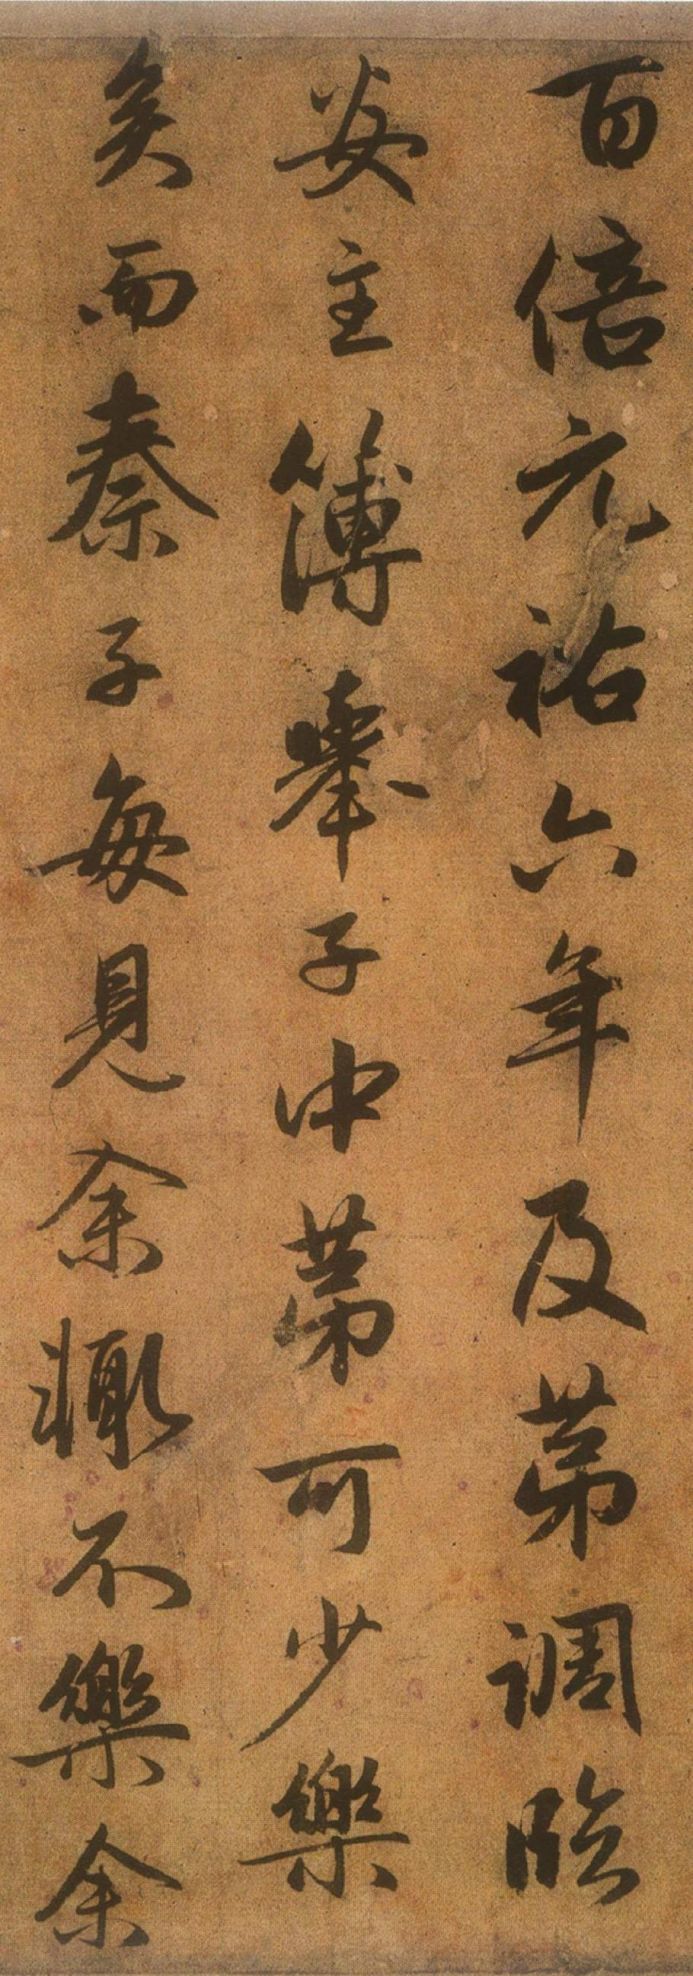 百倍元祐六年及苐調臨
安主簿舉子中苐可少樂
矣而秦子每見余輒不樂余